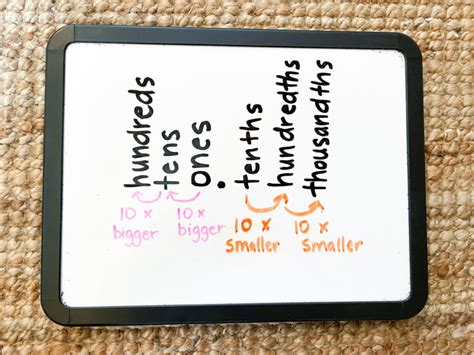 hundreds
tens
ones
.
tenths
hundredths
thousandths
10 x
bigger
10 x
bigger
10 x
smaller
10 x
smaller